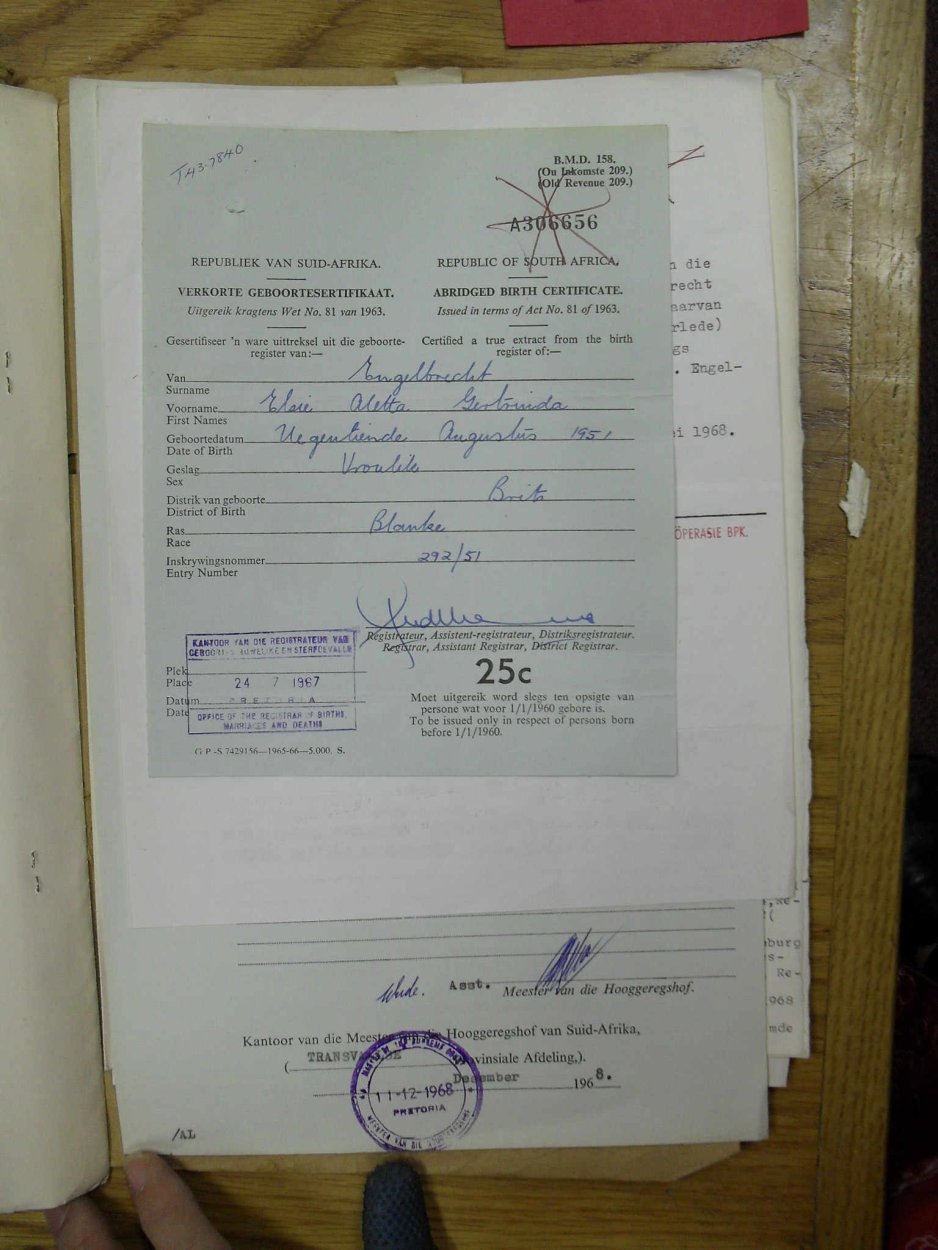 TA3-7840
B.M.D. 158.
(Ou Inkomste 209.)
(Old Revenue 209.)
A306656
REPUBLIEK VAN SUID-AFRIKA.
REPUBLIC OF SOUTH AFRICA.
VERKORTE GEBOORTESERTIFIKAAT.
ABRIDGED BIRTH CERTIFICATE.
Uitgereik kragtens Wet No. 81 van 1963.
Issued in terms of Act No. 81 of 1963.
Gesertifiseer 'n ware uittreksel uit die geboorte-
register van:—
Certified a true extract from the birth
register of:—
Van Engelbrecht
Surname
Voorname Elsie Aletta Gertruida
First Names
Geboortedatum Negentiende Augustus 1951
Date of Birth
Geslag Vroulik
Sex
Distrik van geboorte Brits
District of Birth
Ras Blanke
Race
Inskrywingsnommer 292/51
Entry Number
Registrateur, Assistent-registrateur, Distriksregistrateur.
Registrar, Assistant Registrar, District Registrar.
KANTOOR VAN DIE REGISTRATEUR VAN
GEBOORTES HUWELIKE EN STERFGEVALLE
Plek
Place
24 7 1967
Datum
PRETORIA
Date
OFFICE OF THE REGISTRAR OF BIRTHS,
MARRIAGES AND DEATHS
25c
Moet uitgereik word slegs ten opsigte van
persone wat voor 1/1/1960 gebore is.
To be issued only in respect of persons born
before 1/1/1960.
G.P.-S.7429156—1965-66—5,000. S.
n die
recht
aarvan
rlede)
gs
. Engel-
ei 1968.
ÖPERASIE BPK.
burg
Re-
968
mde
Asst. Meester van die Hooggeregshof.
Kantoor van die Meester van die Hooggeregshof van Suid-Afrika,
(TRANSVAALSE Provinsiale Afdeling,).
Desember 1968.
11-12-1968
PRETORIA
/AL